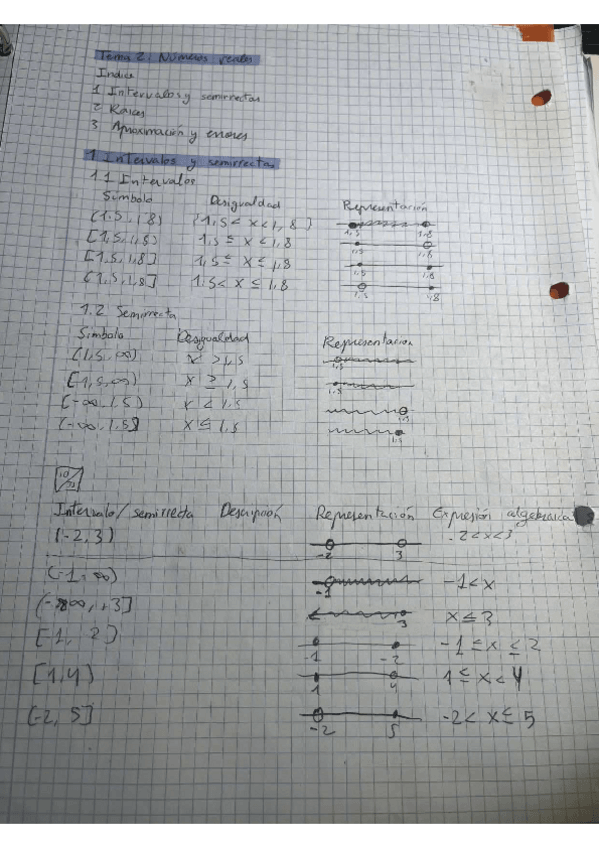 Tema 2: Números reales
Indice
1 Intervalos y semirrectas
2 Raices
3 Aproximación y errores
1 Intervalos y semirrectas
1 1 Intervalos
Simbolo Desigualdad Representación
(1,5, 1,8) {1,5 < x < 1,8} 1,5 1,8
[1,5, 1,8) 1,5 ≤ x < 1,8 1,5 1,8
[1,5, 1,8] 1,5 ≤ x ≤ 1,8 1,5 1,8
(1,5, 1,8] 1,5 < x ≤ 1,8 1,5 1,8
1.2 Semirrecta
Simbolo Desigualdad Representacion
(1,5, ∞) x > 1,5 1,5
[1,5, ∞) x ≥ 1,5 1,5
(-∞, 1,5) x < 1,5 1,5
(-∞, 1,5] x ≤ 1,5 1,5
Intervalo/semirrecta Descripción Representación Expresión algebraica
(-2,3) -2 3 -2<x<3
(-1, ∞) -1 -1<x
(-∞, +3] 3 x≤3
[1, 2) -1 -2 -1≤x≤2
[1,4) 1 4 1≤x<4
(-2, 5] -2 5 -2<x≤5